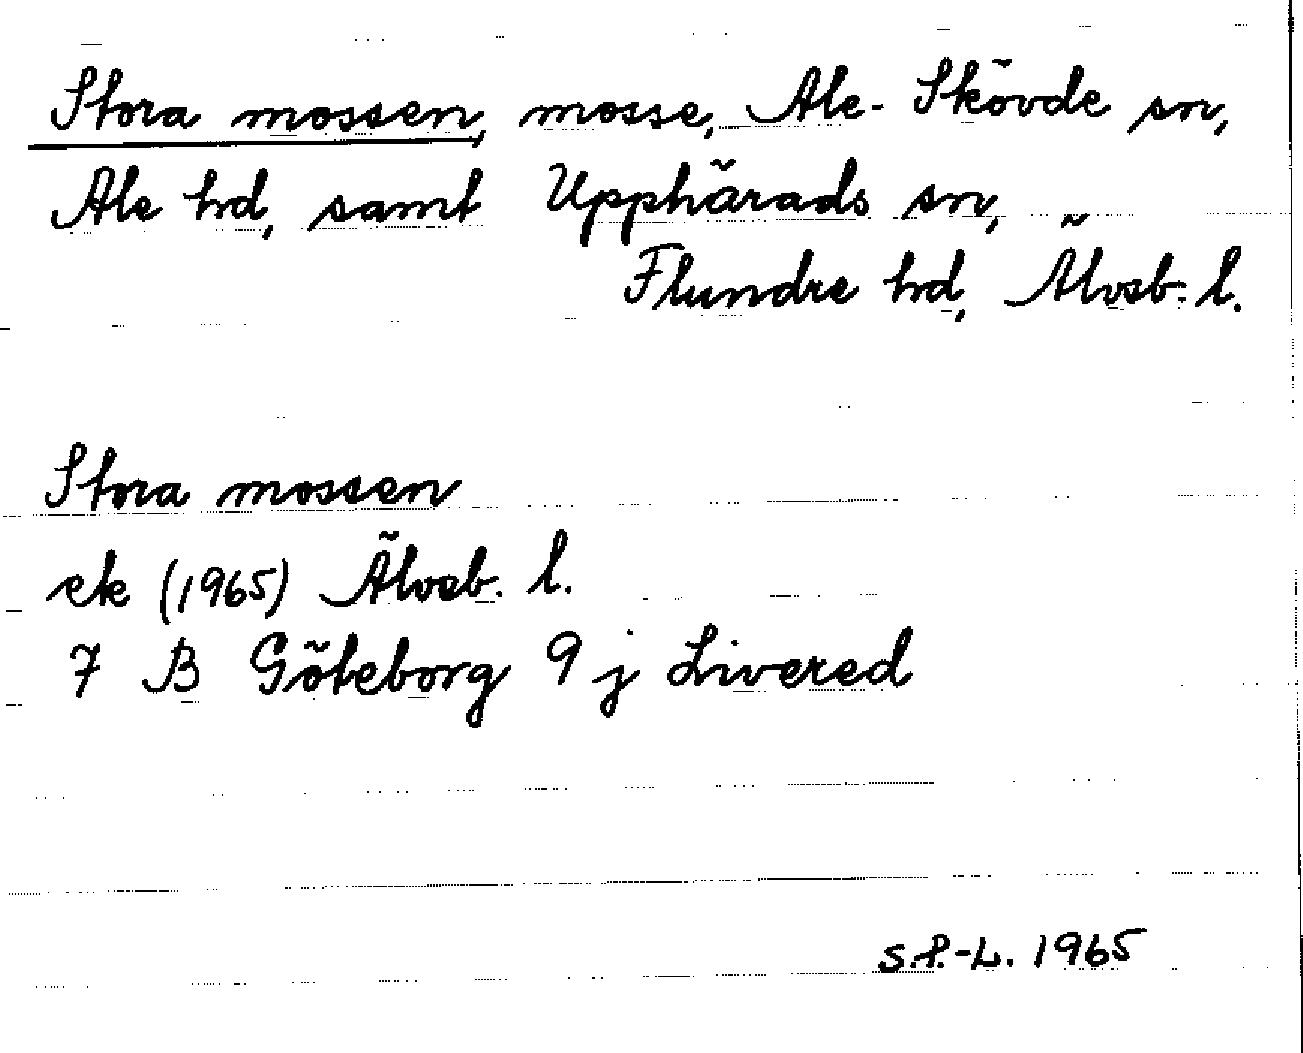 Stora mossen, mosse, Ale-Skövde sn,
Ale hd, samt Upphärads sn,
Flundre hd, Älvsb. l.
Stora mossen
ek (1965) Älvsb. l.
7 B Göteborg 9 j Livered
S.P.-L. 1965